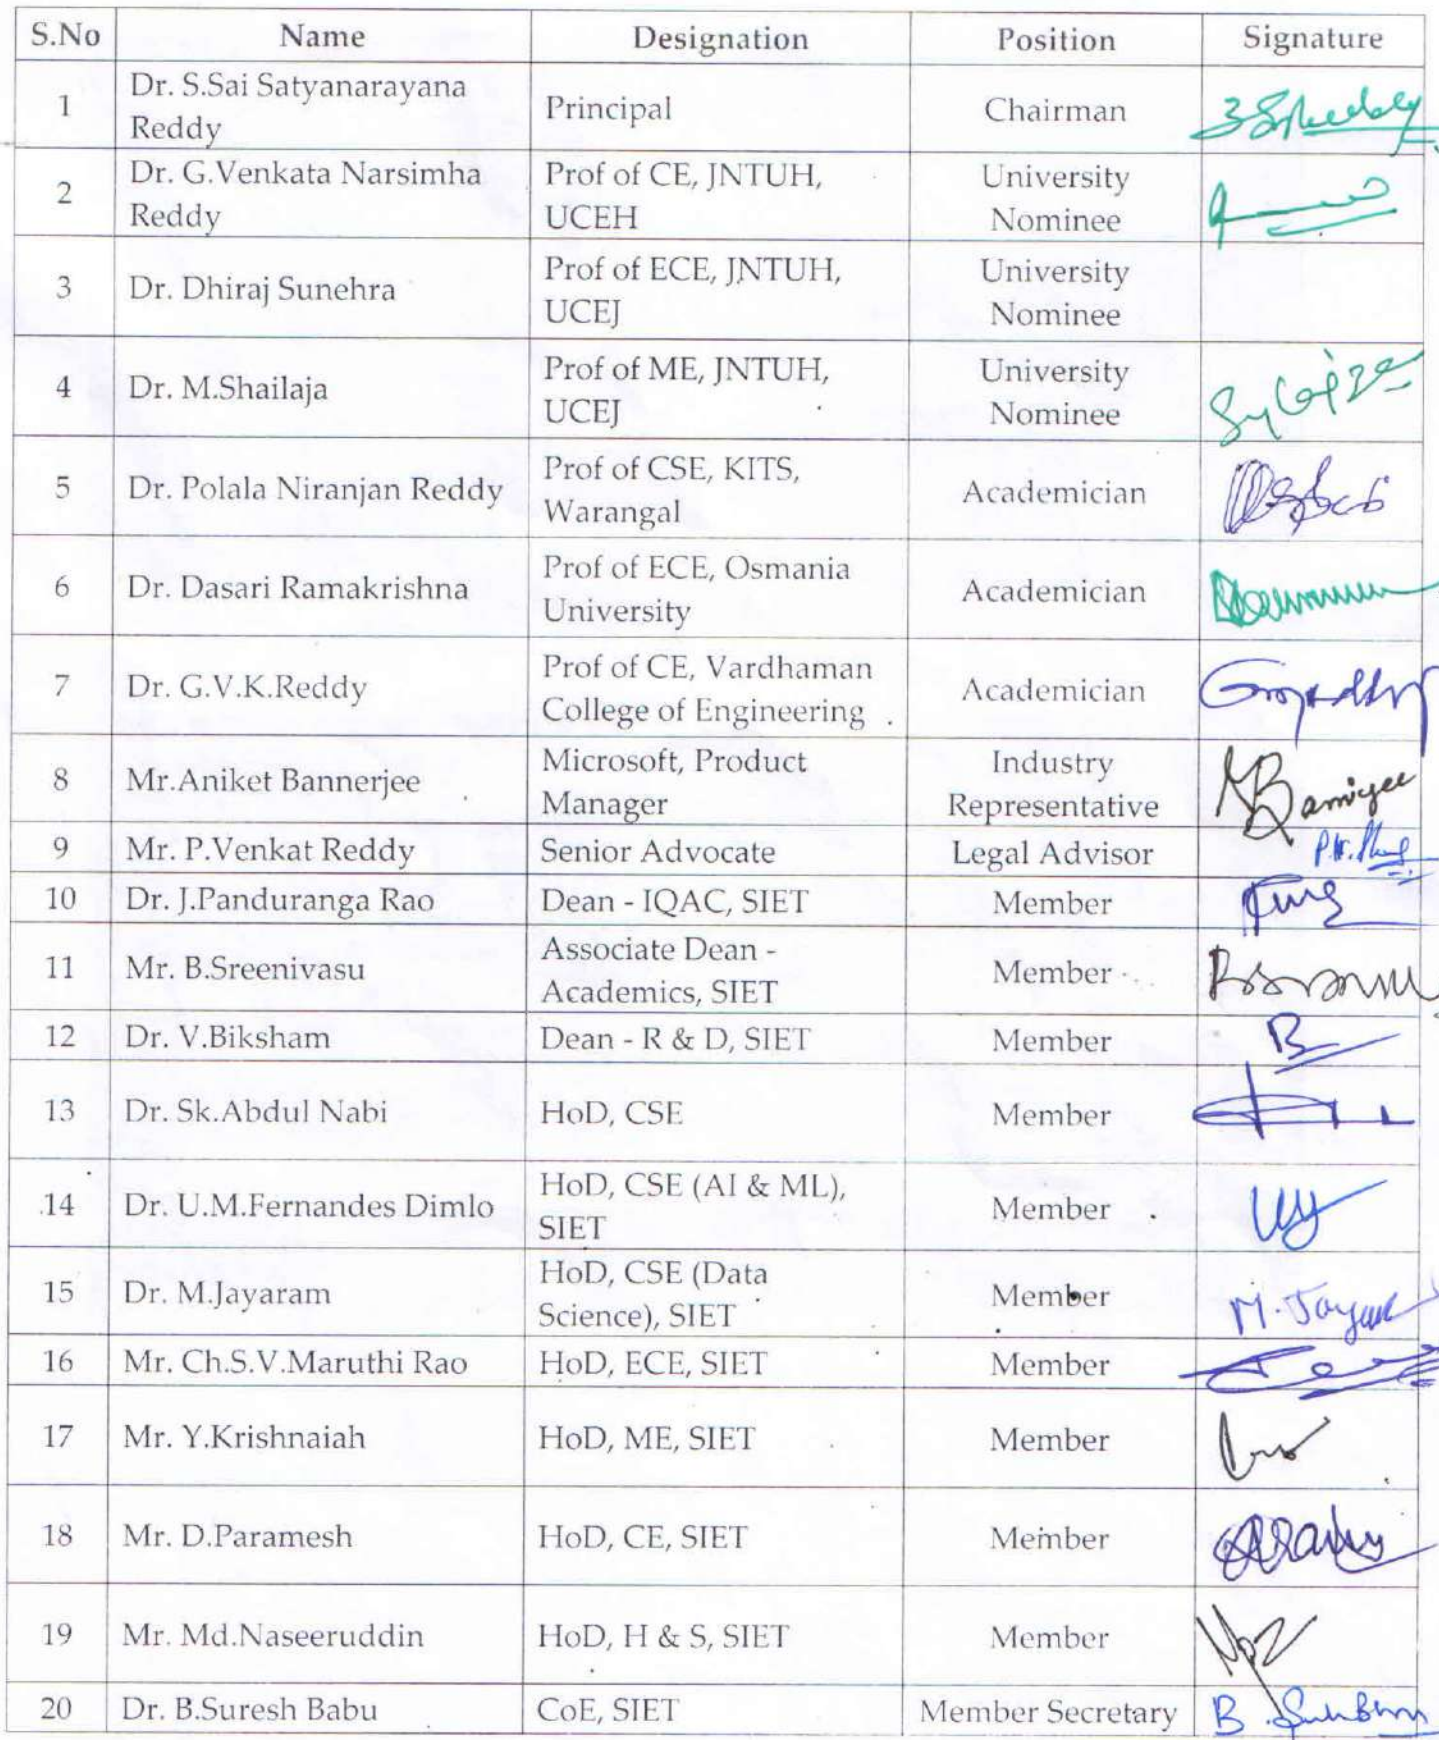 S.No Name Designation Position Signature
1 Dr. S.Sai Satyanarayana Reddy Principal Chairman
2 Dr. G.Venkata Narsimha Reddy Prof of CE, JNTUH, UCEH University Nominee
3 Dr. Dhiraj Sunehra Prof of ECE, JNTUH, UCEJ University Nominee
4 Dr. M.Shailaja Prof of ME, JNTUH, UCEJ University Nominee
5 Dr. Polala Niranjan Reddy Prof of CSE, KITS, Warangal Academician
6 Dr. Dasari Ramakrishna Prof of ECE, Osmania University Academician
7 Dr. G.V.K.Reddy Prof of CE, Vardhaman College of Engineering Academician
8 Mr.Aniket Bannerjee Microsoft, Product Manager Industry Representative
9 Mr. P.Venkat Reddy Senior Advocate Legal Advisor
10 Dr. J.Panduranga Rao Dean - IQAC, SIET Member
11 Mr. B.Sreenivasu Associate Dean - Academics, SIET Member
12 Dr. V.Biksham Dean - R & D, SIET Member
13 Dr. Sk.Abdul Nabi HoD, CSE Member
14 Dr. U.M.Fernandes Dimlo HoD, CSE (AI & ML), SIET Member
15 Dr. M.Jayaram HoD, CSE (Data Science), SIET Member
16 Mr. Ch.S.V.Maruthi Rao HoD, ECE, SIET Member
17 Mr. Y.Krishnaiah HoD, ME, SIET Member
18 Mr. D.Paramesh HoD, CE, SIET Member
19 Mr. Md.Naseeruddin HoD, H & S, SIET Member
20 Dr. B.Suresh Babu CoE, SIET Member Secretary